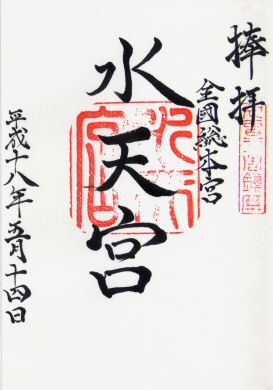 捧拝
全國総本宮
水天宮
平成十八年五月十四日